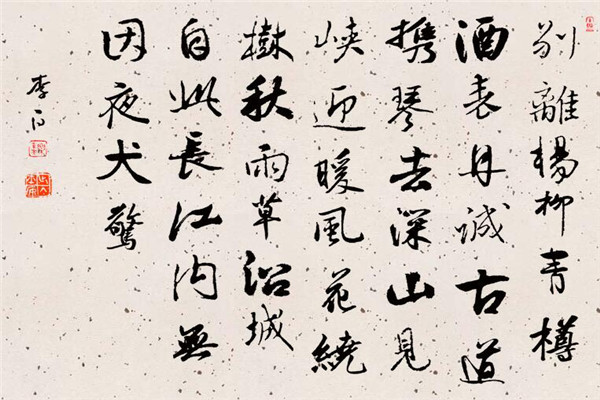 別離楊柳青樽
酒表丹誠古道
携琴去深山見
峽迎暖風花繞
樹秋雨草沿城
自此長江內無
因夜犬驚
李